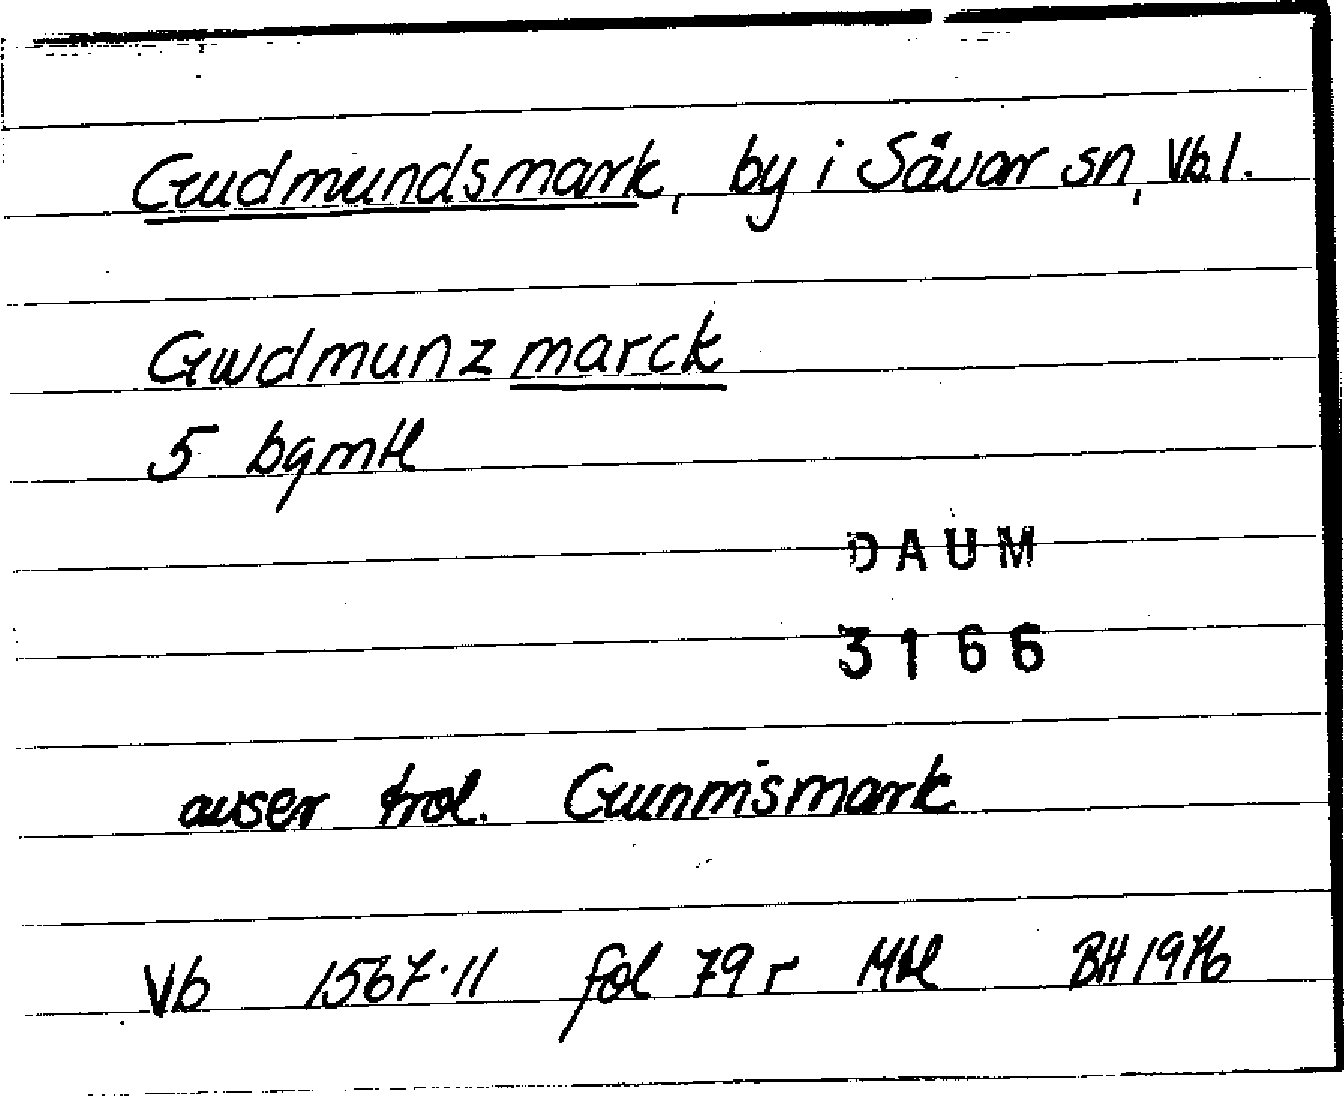 Gudmundsmark, by i Sävar sn, Vbl.
Gwdmunzmarck
5 bgmtl
DAUM
3166
avser trol. Gunnismark
Vb 1567:11 fol 79 r Mtl BH 1976